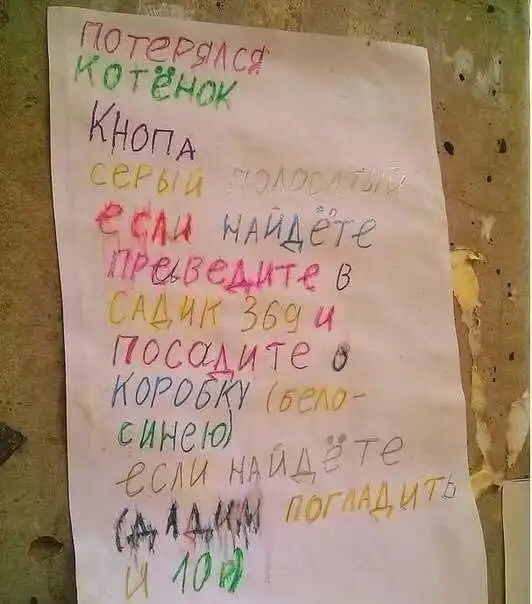 ПОТЕРЯЛСЯ
КОТЁНОК
КНОПА
СЕРЫЙ ПОЛОСАТЫЙ
если НАЙДЁТЕ
ПРЕВЕДИТЕ В
САДИК 369 и
ПОСАДИТЕ в
КОРОБКУ (бело-
синею)
если НАЙДЁТЕ
ДАДИМ ПОГЛАДИТЬ
И 10р